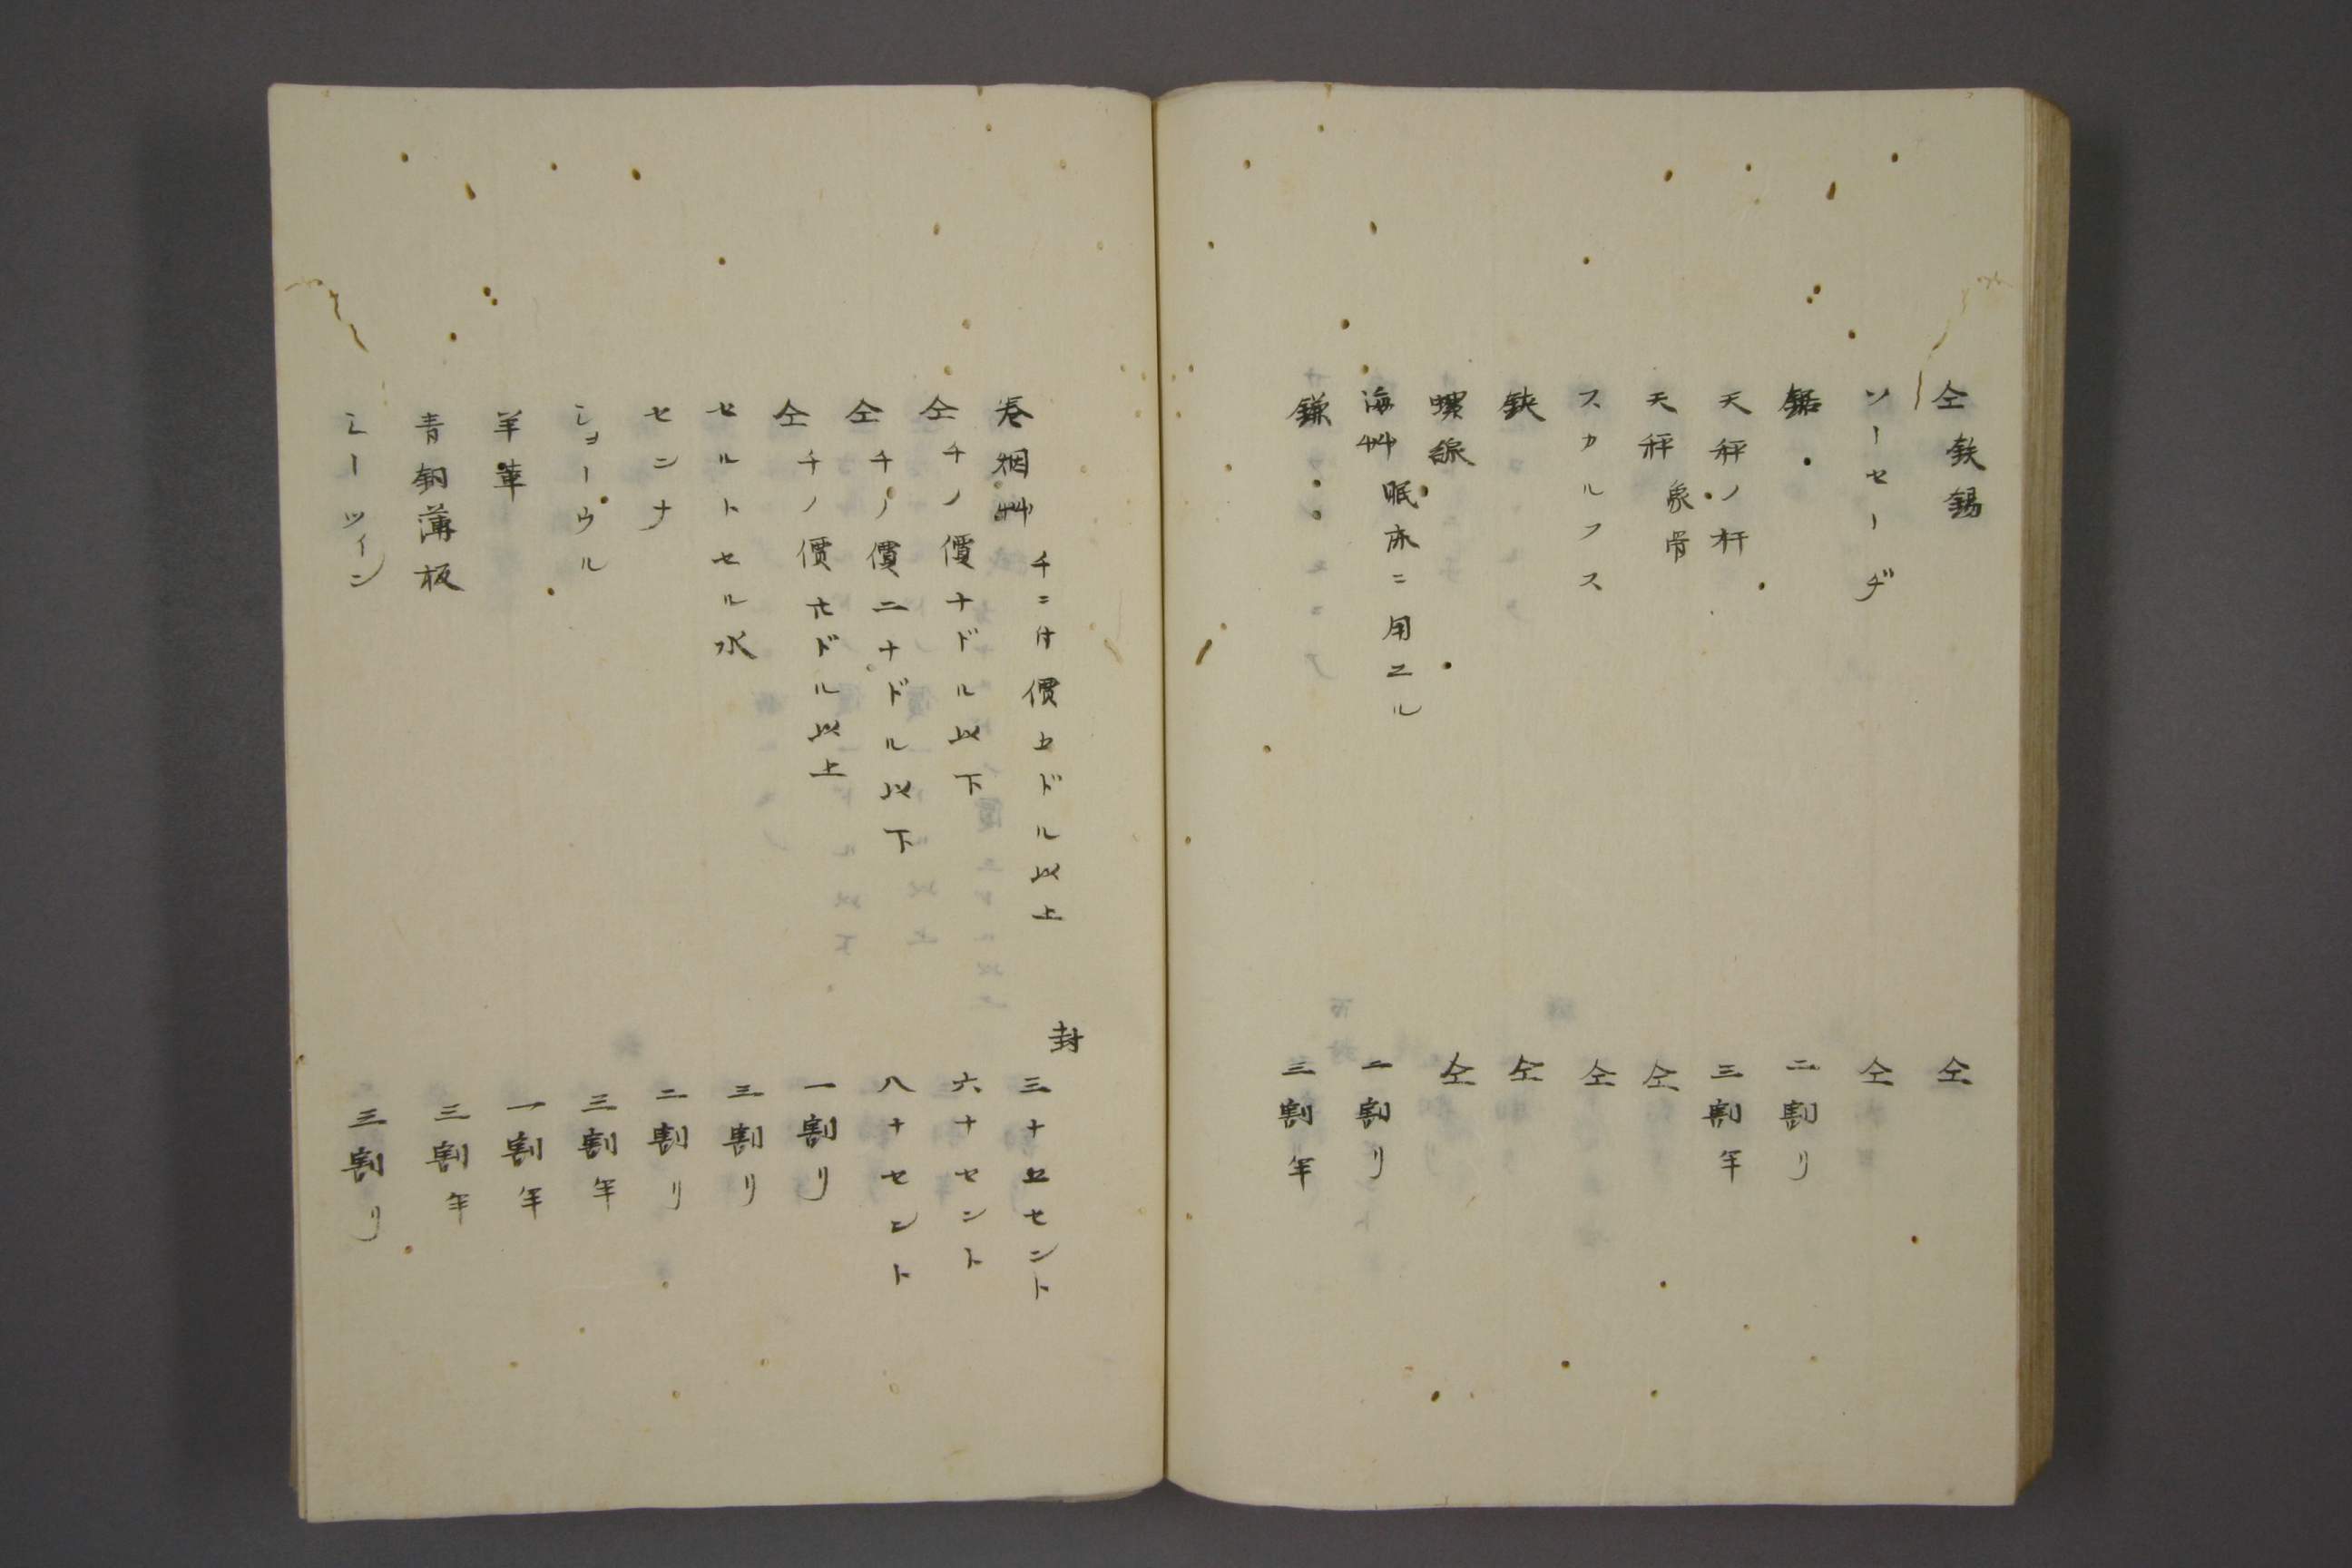 仝 鉄錫 仝
ソーセーヂ 仝
鋸 二割リ
天秤ノ杆 三割半
天秤 象骨 仝
スカルフス 仝
鋏 仝
螺線 仝
海艸 眠床ニ用ユル 二割リ
鎌 三割半
巻烟艸 千ニ付價五ドル以上 封三十五セント
仝 千ノ價十ドル以下 六十セント
仝 千ノ價二十ドル以下 八十セント
仝 千ノ價廿ドル以上 一割リ
セルトセル水 三割リ
センナ 二割リ
ショーウル 三割半
羊革 一割半
青銅薄板 三割半
シーツィン 三割リ